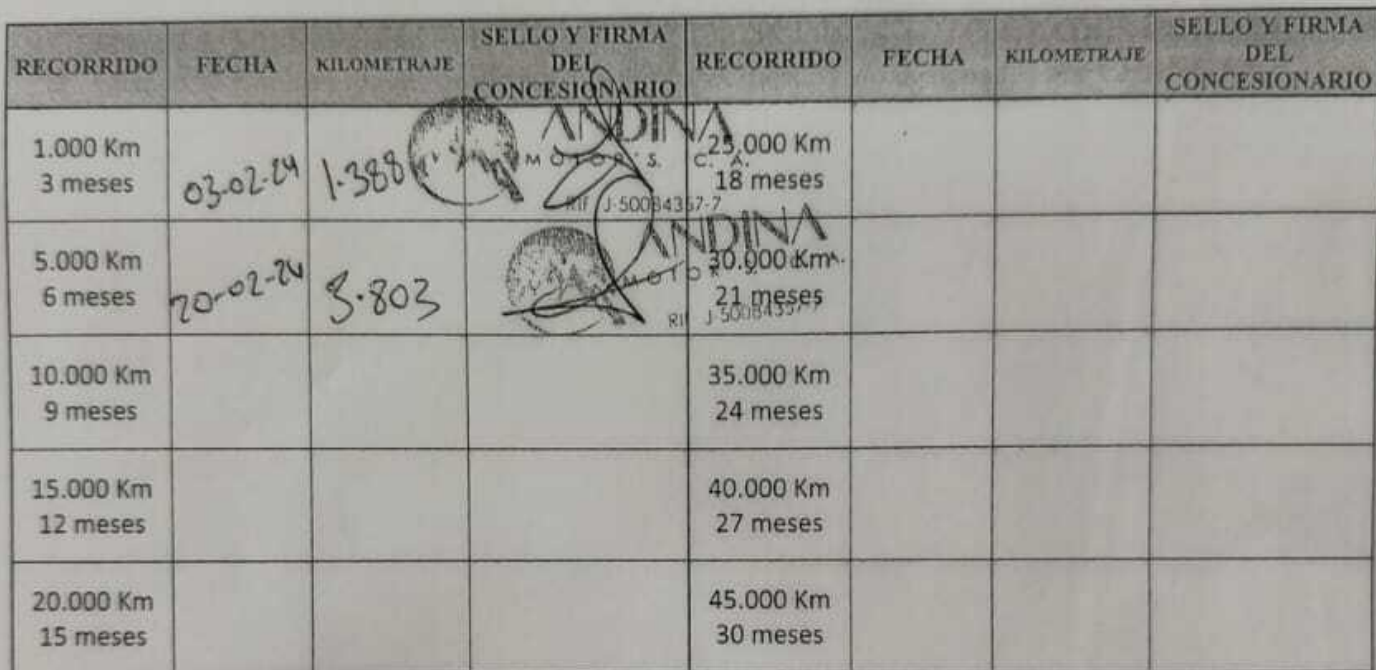 RECORRIDO FECHA KILOMETRAJE SELLO Y FIRMA DEL CONCESIONARIO RECORRIDO FECHA KILOMETRAJE SELLO Y FIRMA DEL CONCESIONARIO
1.000 Km
3 meses
03-02-24
1.388
ANDINA
MOTOR'S. C. A.
RIF J-50084357-7
25.000 Km
18 meses
5.000 Km
6 meses
20-02-24
ANDINA
30.000 Km
21 meses
10.000 Km
9 meses
35.000 Km
24 meses
15.000 Km
12 meses
40.000 Km
27 meses
20.000 Km
15 meses
45.000 Km
30 meses